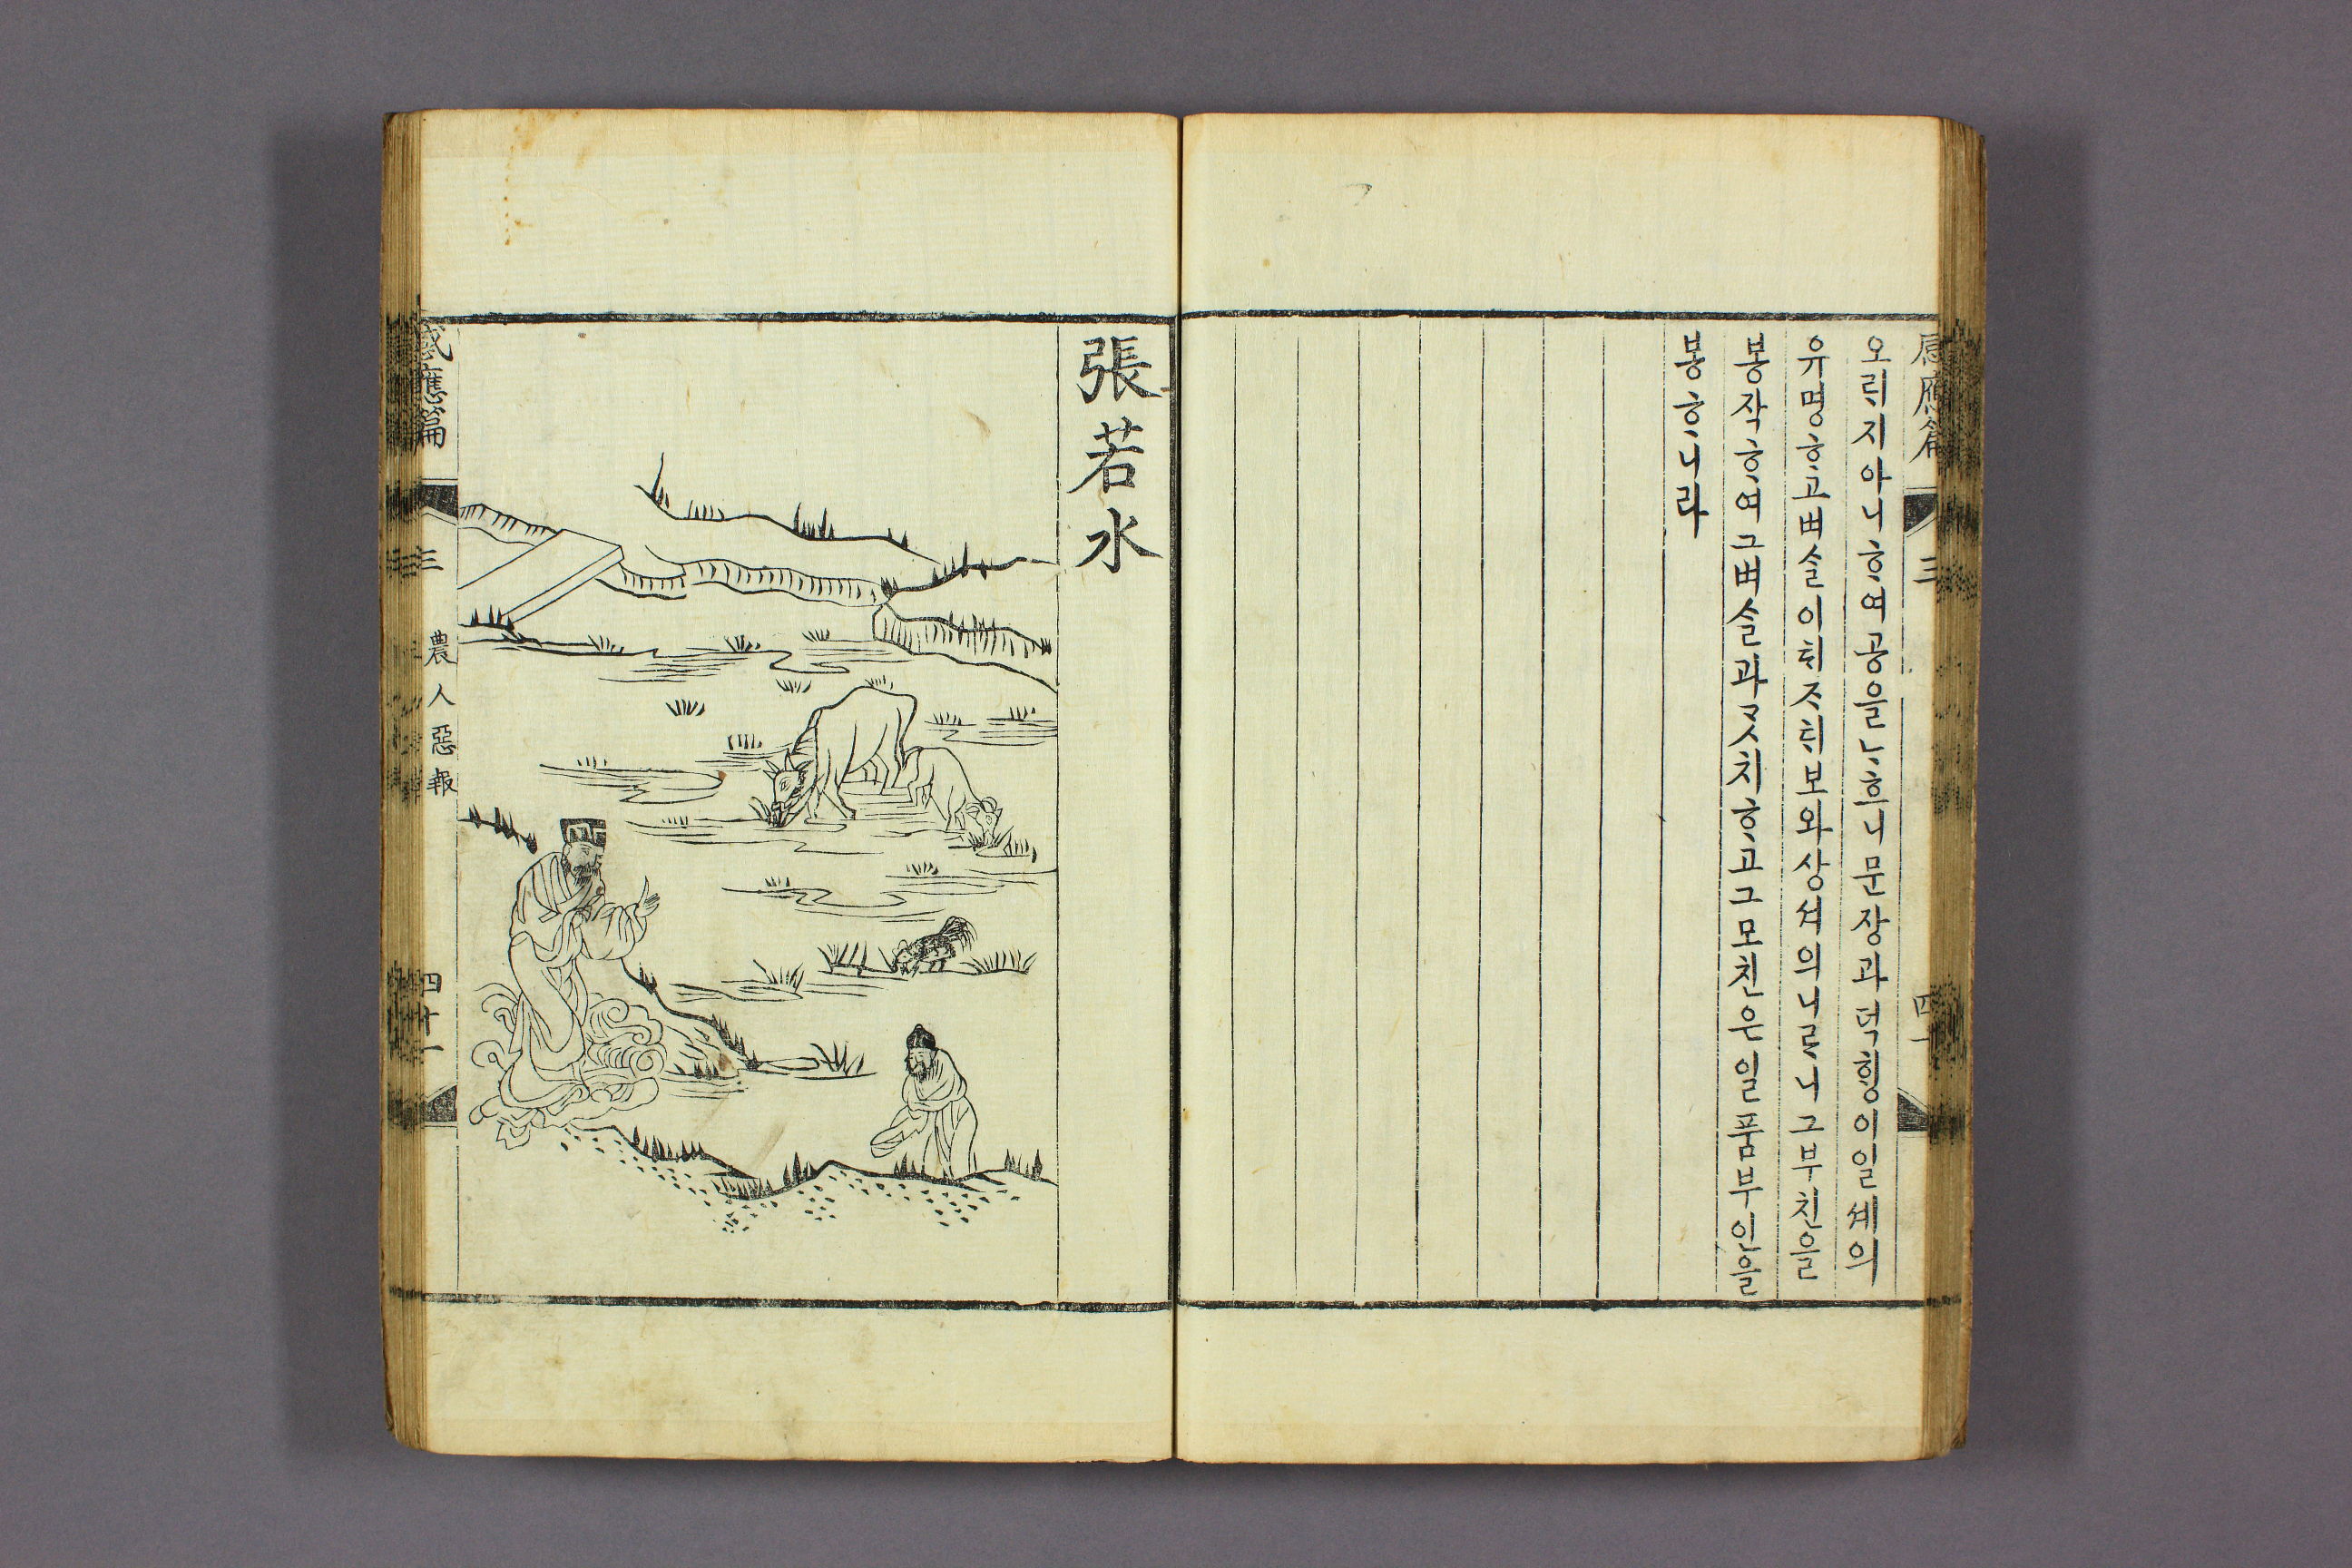 感應篇 三
오ᄅᆡ지아니ᄒᆞ여공을ᄂᆞ흐니문장과덕ᄒᆡᆼ이일셰의
유명ᄒᆞ고벼슬이ᄐᆡᄌᆞᄐᆡ보와상셔의니ᄅᆞ니그부친을
봉작ᄒᆞ여그벼슬과ᄀᆞᆺ치ᄒᆞ고그모친은일품부인을
봉ᄒᆞ니라
張若水
感應篇 三 農人惡報 四十一